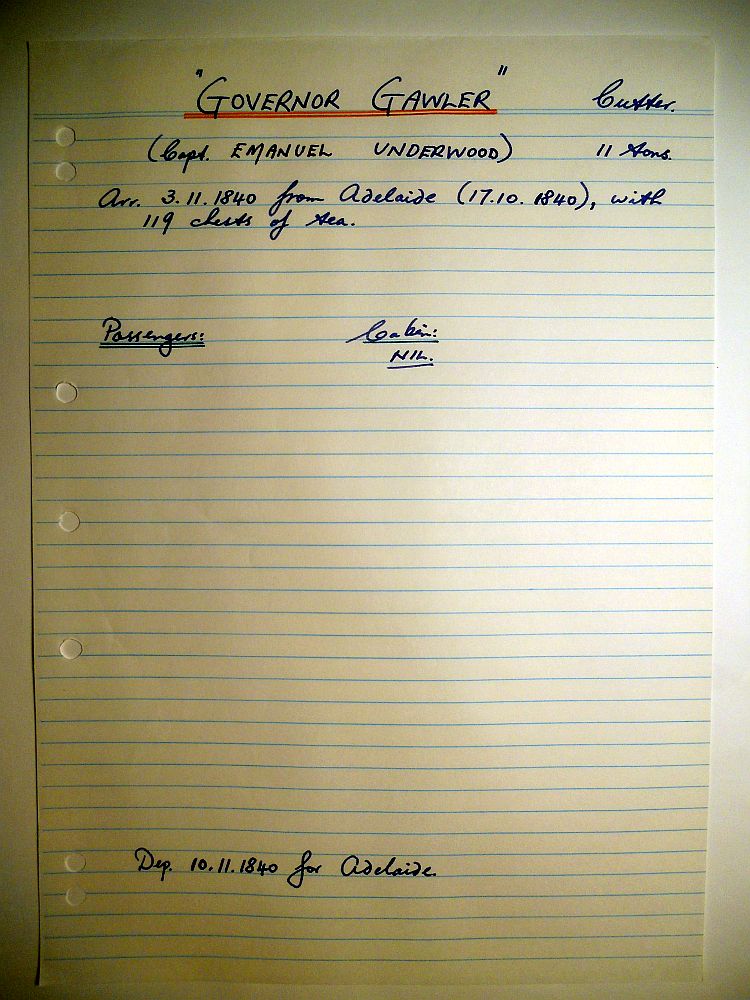 "GOVERNOR GAWLER" Cutter.
(Capt. EMANUEL UNDERWOOD) 11 tons.
Arr. 3.11.1840 from Adelaide (17.10.1840), with
119 chests of tea.
Passengers: Cabin:
NIL.
Dep. 10.11.1840 for Adelaide.